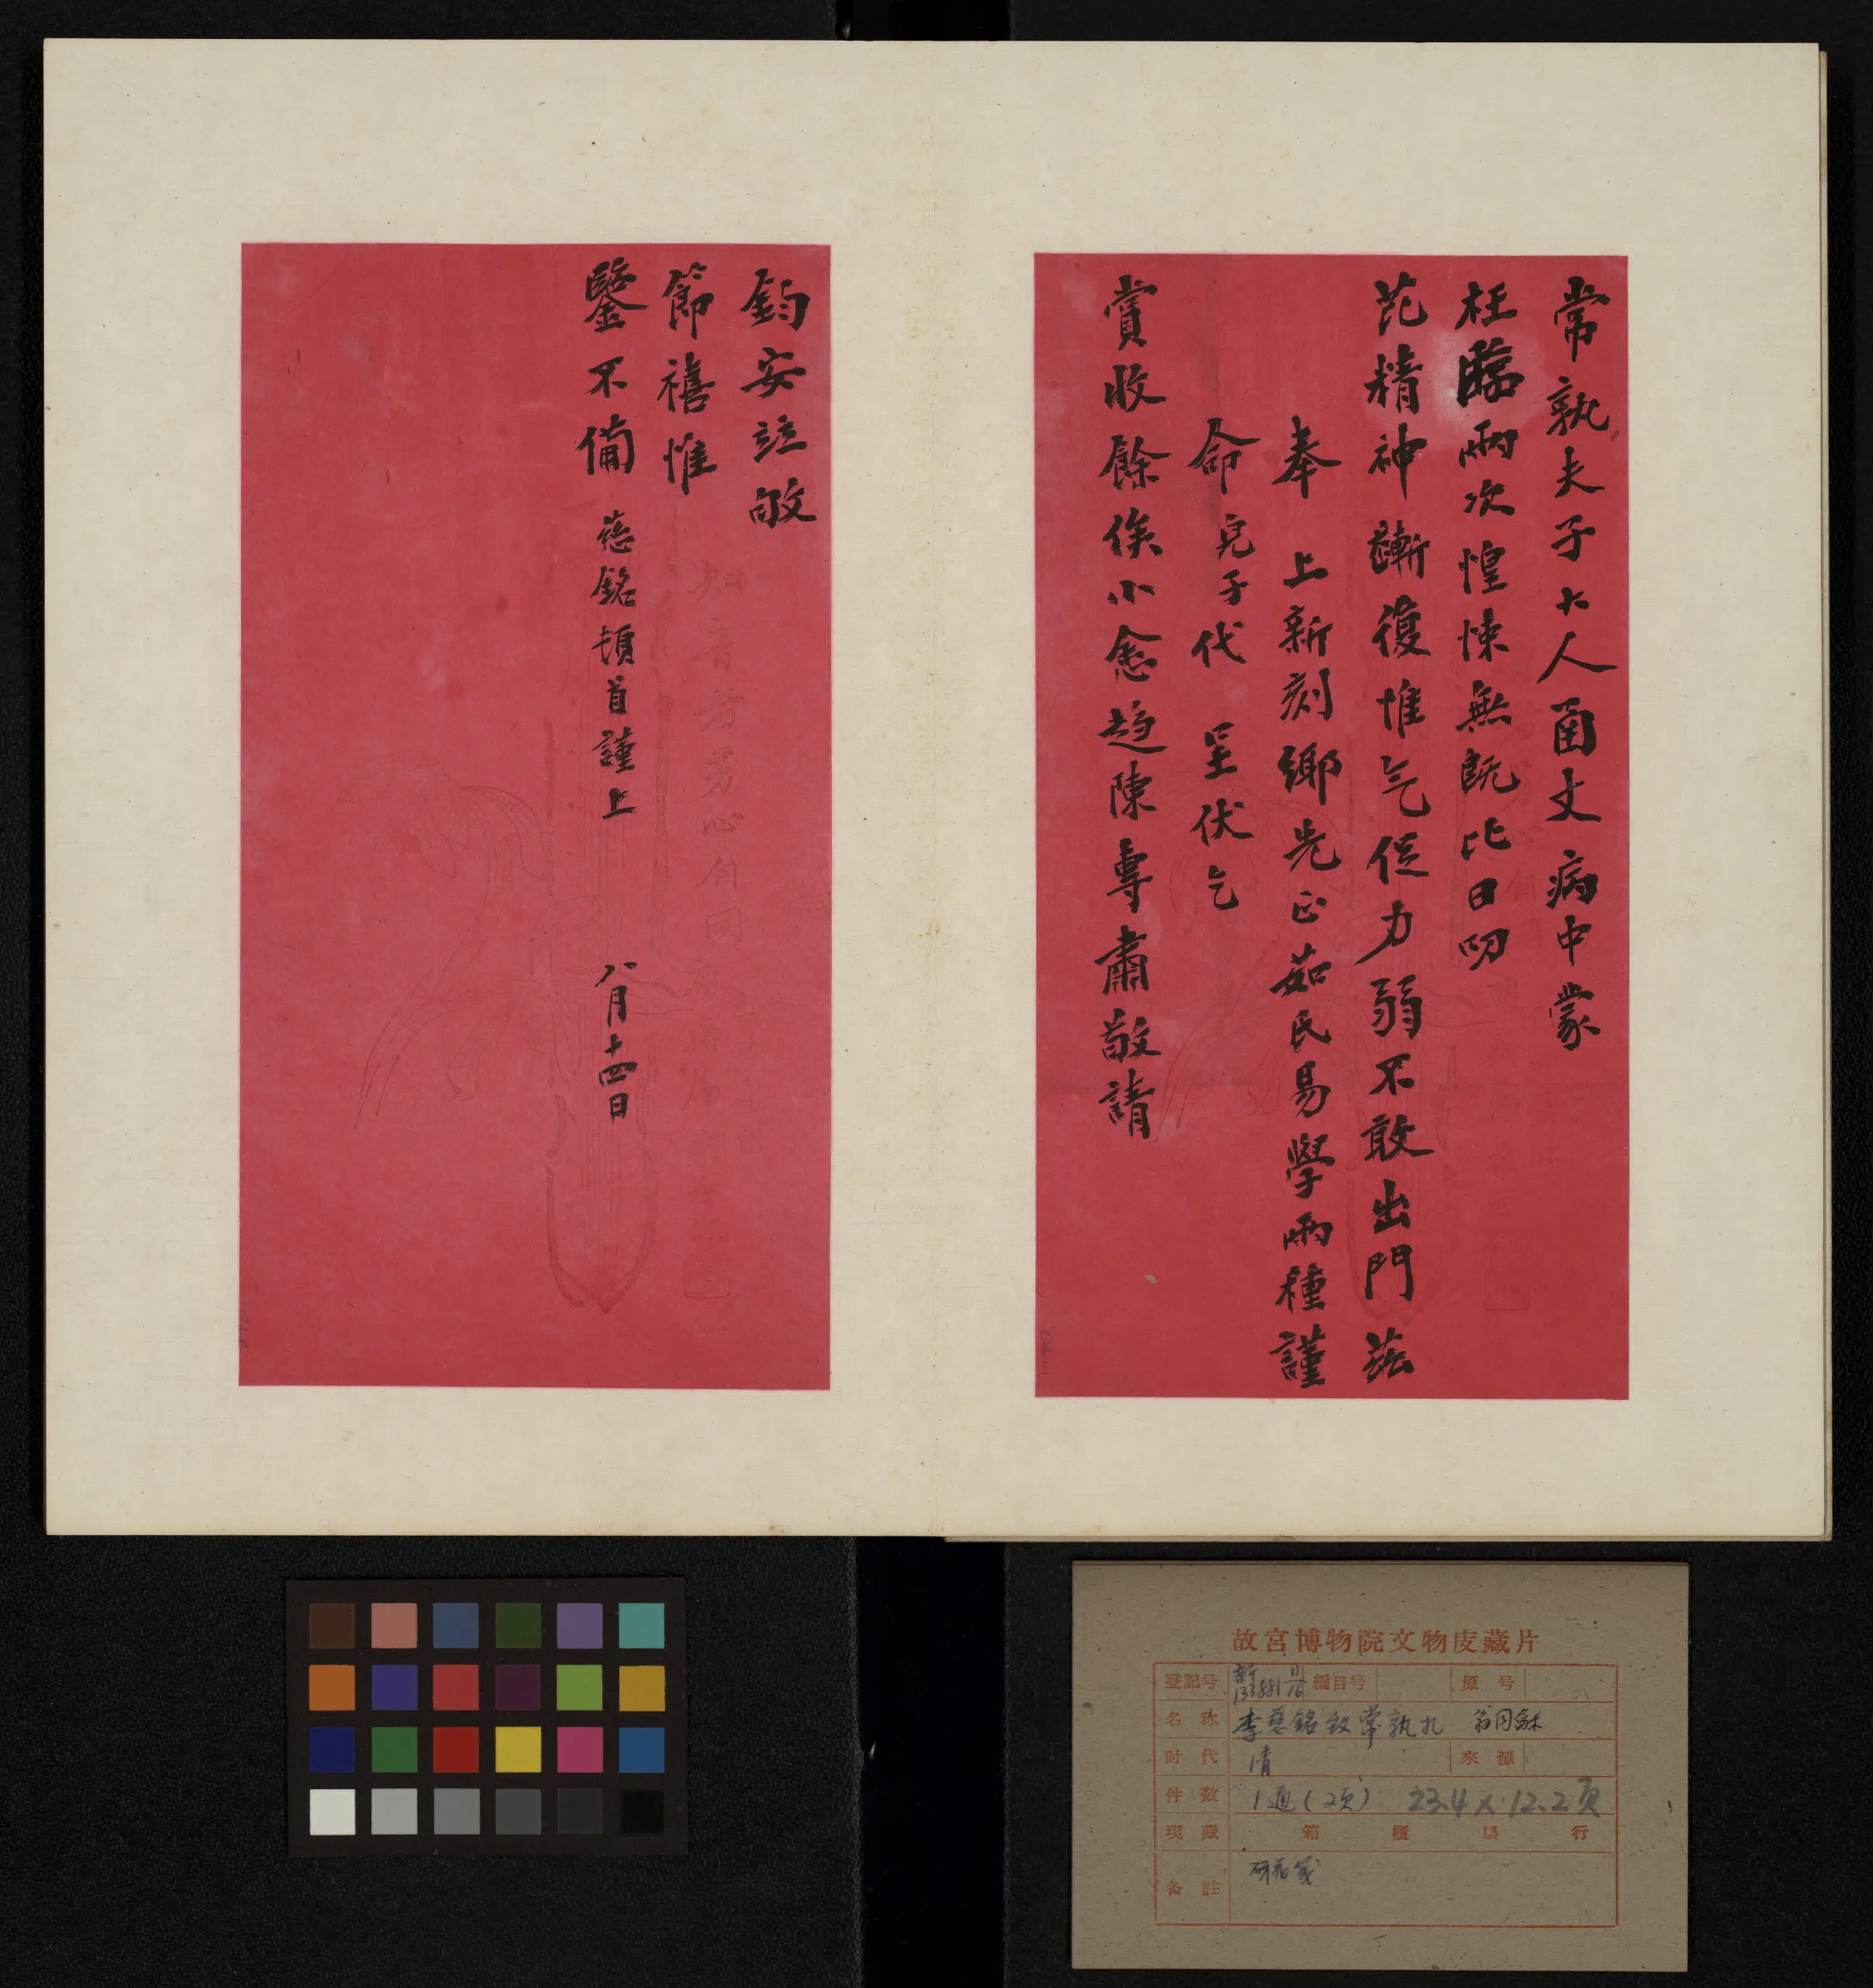 常孰夫子大人函丈病中蒙
枉臨兩次惶悚無旣比日叨
芘精神漸復惟气促力弱不敢出門茲
奉上新刻鄉先正茹氏易學兩種謹
命兒子代呈伏乞
賞收餘俟小愈趋陳專肅敬請
鈞安竝敂
節禧惟
鑒不備 慈銘頓首謹上 八月十四日
故宮博物院文物庋藏片
登記号 新133881 11/16 編目号 原号
名称 李慈銘致常孰札 翁同龢
时代 清 來源
件数 1通(2页) 23.4×12.2页
現藏 箱 櫃 层 行
备註 砑花箋